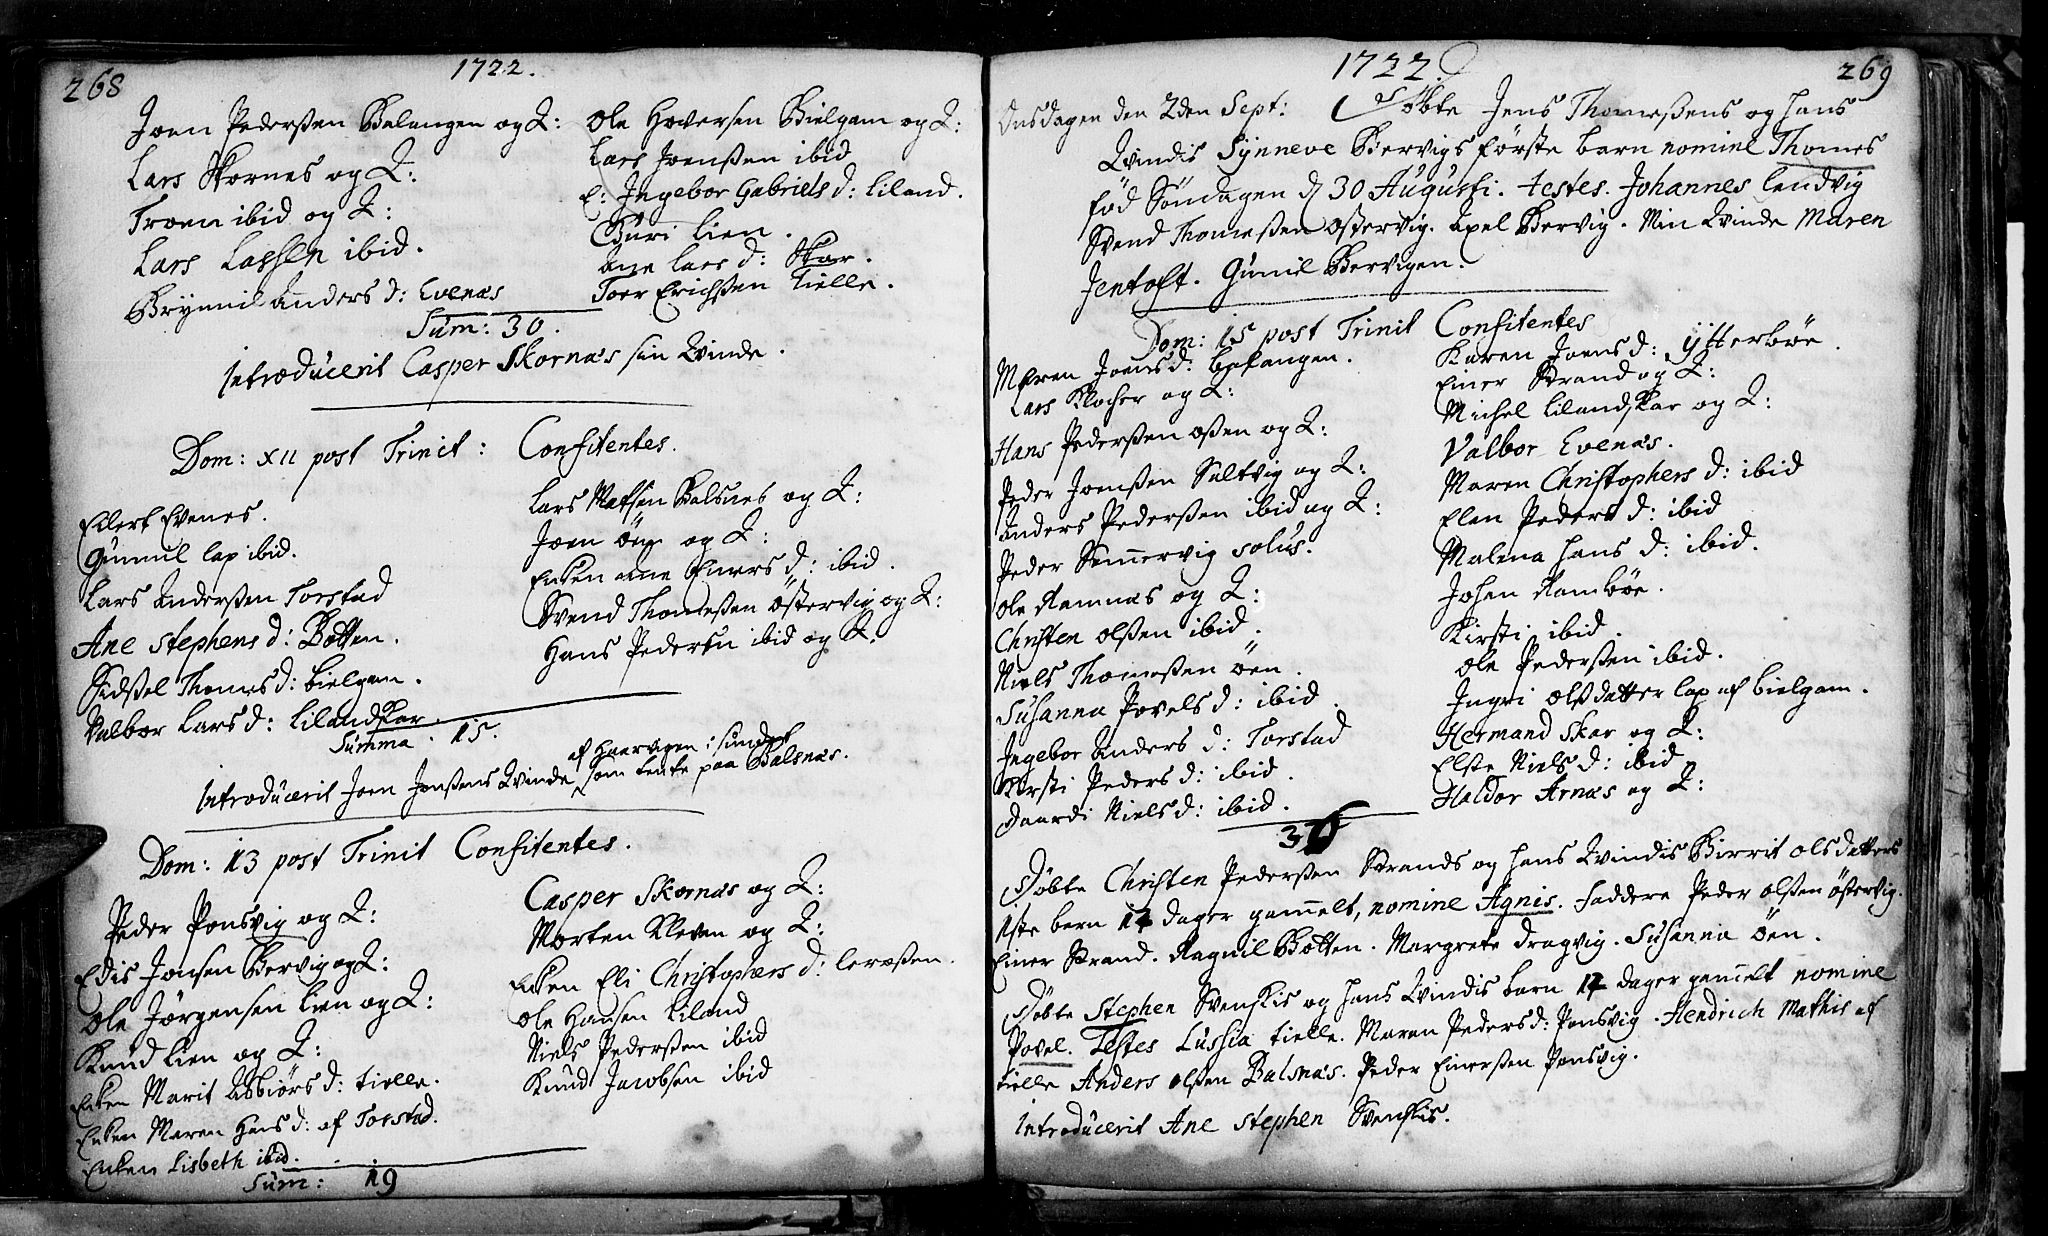 268
1722.
Joen Pederßen Balangen og Q:
Lars Skornes og Q:
Troen ibid og Q:
Lars Lassen ibid.
Brynnil Anders d: Evenæs
Ole Hoversen Bielgam og Q:
Lars Joenßen ibid
E: Ingebor Gabriels d: Liland.
Guri Lien.
Ane Lars d: Skar.
Toer Erichßen Tielle.
Sum: 30.
Introducerit Casper Skornæs sin Qvinde.
Dom: XII post Trinit: Confitentes.
Eilert Evenes.
Gunnil lap ibid.
Lars Anderßen Torstad
Ane Stephens d: Botten.
Sidßel Thomes d: Bielgam.
Valbor Lars d: Lilandskar.
Lars Matsen Balsnes og Q:
Joen öen og Q:
Enken ane Einers d: ibid.
Svend Thomeßen Östervig og Q:
Hans Pedersen ibid og Q.
Summa. 15.
af Haarvigen i sundet
Introducerit Joen Jonßens Qvinde som tente paa Balsnæs.
Dom: 13 post Trinit Confitentes.
Peder Ponsvig og Q:
Edis Jonsen Bervig og Q:
Ole Jörgensen Lien og Q:
Knud Lien og Q:
Enken Marit Asbiörs d: Tielle.
Enken Maren Hans d: af Torstad.
Enken Lisbeth ibid.
Casper Skornæs og Q:
Morten Kleven og Q:
Enken Eli Christophers d: Leroßen.
Ole Hansen Liland
Niels Pederßen ibid
Knud Jacobsen ibid
Sum: 19
1722.
269
Onsdagen den 2den Sept: Döbte Jens Thomeßens og Hans
Qvindis Synneve Bervigs förste barn nomine Thomes
föd Söndagen d 30 Augusti. testes. Johannes Lendvig
Svend Thomeßen Östervig. Axel Bervig. Min Qvinde Maren
Jentoft. Gunnil Bervigen.
Dom: 15 post Trinit Confitentes
Maren Joens d: Bollangen.
Lars Klocher og Q:
Hans Pederßen oßen og Q:
Peder Joenßen Saltvig og Q:
Anders Pederßen ibid og Q:
Peder Semmervig solus.
Ole Ramnæs og Q:
Christen olßen ibid.
Niels Thomeßen öen.
Susanna Povels d: ibid.
Ingebor Anders d: Torstad
Kirsti Peders d: ibid.
Daardi Niels d: ibid.
Karen Joens d: Ÿtterböe.
Einer Strand og Q:
Michel Lilandskar og Q:
Valbor Evenæs.
Maren Christophers d: ibid
Elen Peders d: ibid
Malena Hans d: ibid.
Johen Ramböe.
Kirsti ibid.
Ole Pederßen ibid.
Ingri olßdatter lap af Bielgam.
Hermand Skar og Q:
Elste Niels d: ibid
Haldor Arnæs og Q:
36
Döbte Christen Pederßen Strands og Hans Qvindis Birrit olsdatters
1ste barn 17 dager gammelt, nomine Agnis. Faddere Peder olßen Östervig.
Einer Strand. Ragnil Botten. Margrete Dragvig. Susanna öen.
Döbte Stephen Svenskis og Hans Qvindis barn 17 dager gammelt nomine
Povel. Testes Lussia Tielle. Maren Peders d: Ponsvig. Hendrich Mathis af
Tielle Anders olßen Balsnæs. Peder Einerßen Ponsvig.
Introducerit Ane Stephen Svenskis.